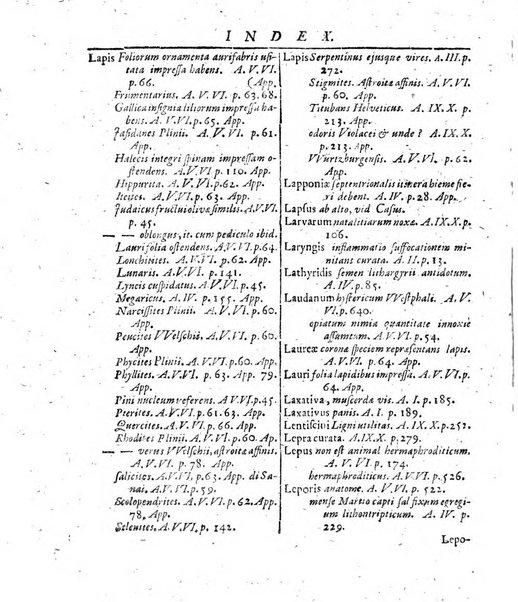 INDEX.
Lapis Foliorum ornamenta aurifabris usi-
tata impressa habens. A. V. VI.
p. 66. (App.
Frumentarius. A. V. VI. p. 63. 68.
Gallica insignia liliorum impressa ha-
bens. A. V. VI. p. 65. App.
Jasidanes Plinii. A. V. VI. p. 61.
App.
Halecis integri spinam impressam o-
stendens. A. V. VI p. 110. App.
Hippurita. A. V. VI. p. 62. App.
Iteves. A. V. VI. p. 63. App.
Judaicus fructui olivæ similis. A. VI.
p. 45.
— — oblongus, it. cum pediculo ibid.
Laurifolia ostendens. A. V. VI. p. 64.
Lonchinites. A. V. VI. p. 62. App.
Lunaris. A. V. VI. p. 141.
Lyncis cuspidatus. A. V. VI. p. 45.
Megaricus. A. IV. p. 155. App.
Narcissites Plinii. A. V. VI. p. 60.
App.
Peucites VVelschii. A. V. VI. p. 62.
App.
Phycites Plinii. A. V. VI. p. 60. App.
Phyllites. A. V. VI. p. 63. App. 79.
App.
Pini nucleum referens. A. V. VI. p. 45.
Pterites. A. V. VI. p. 61. 63. App.
Quercites. A. V. VI. p. 62. App.
Rhodites Plinii. A. V. VI. p. 60. App.
— — verus VVelschii, astroitæ affinis.
A. V. VI. p. 78. App.
Salicites. A. V. VI. p. 63. App. di Sa-
nai. A. V. VI. p. 59.
Scolopendrites. A. V. VI. p. 62. App.
78. App.
Seleuites. A. V. VI. p. 142.
Lapis Serpentinus ejusque vires. A. III. p.
272.
Stigmites. Astroitæ affinis. A. V. VI.
p. 60. App.
Titubans Helveticus. A. IX. X. p.
213. App.
odoris Violacei & unde? A. IX. X.
p. 213. App.
VVurtzburgensis. A. V. VI. p. 62.
App.
Lapponiæ septentrionalis itinera hieme fie-
ri debent. A. IV. p. 28. App.
Lapsus ab alto, vid Casus.
Larvarum natalitiarum noxæ. A. IX. X. p.
106.
Laryngis inflammatio suffocationem mi-
nitans curata. A. II. p. 13.
Lathyridis semen lithargyrii antidotum.
A. IV. p. 85.
Laudanum hystericum VVestphali. A. V.
VI. p. 640.
opiatum nimia quantitate innoxiè
assumtum. A. V. VI. p. 54.
Laureæ coronæ speciem repræsentans lapis.
A. V. VI. p. 64. App.
Lauri folia lapidibus impressa. A. V. VI. p.
64. App.
Laxativa, muscerdæ vis. A. I. p. 185.
Laxativus panis. A. I. p. 189.
Lentiscini Ligni utilitas. A. IX. X. p. 253.
Lepra curata. A. IX. X. p. 279.
Lepus non est animal hermaphroditicum.
A. V. VI. p. 174.
hermaphroditicus. A. V. VI. p. 526.
Leporis anatome. A. V. VI. p. 522.
mense Martio capti sal fixum egregi
um lithontripticum. A. IV. p.
229.
Lepo-